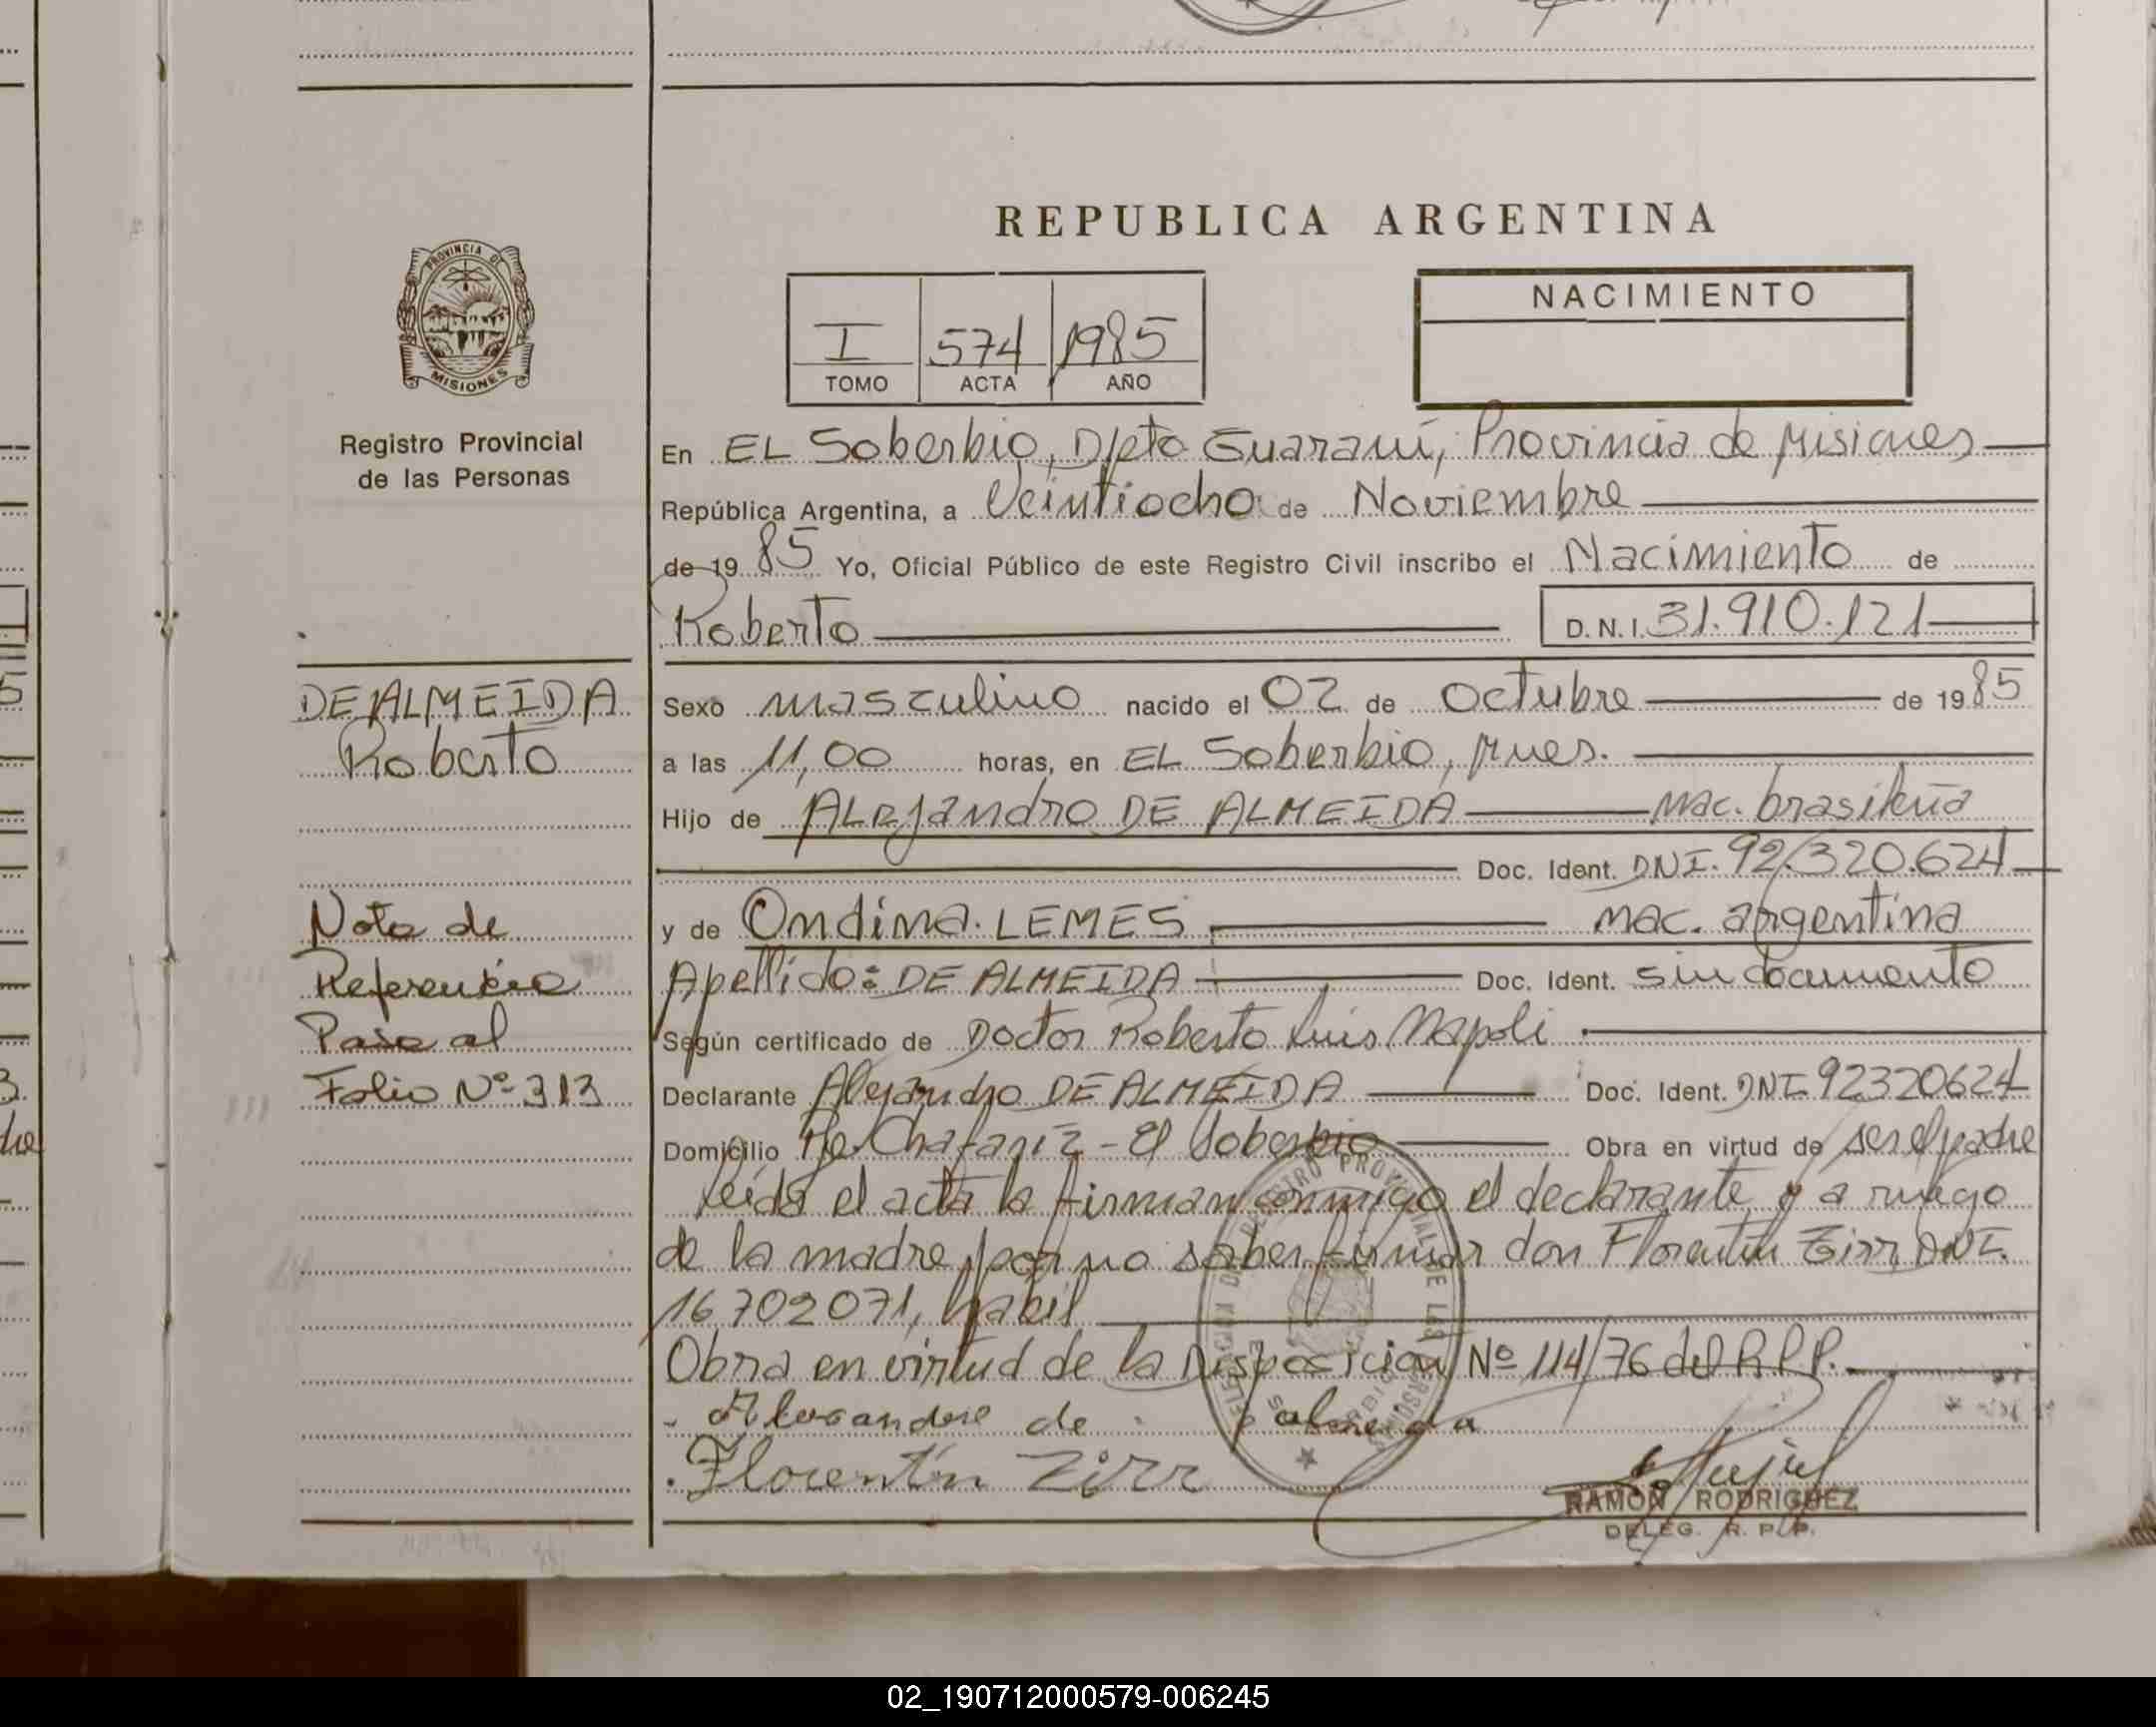 REPUBLICA ARGENTINA
PROVINCIA DE
MISIONES
Registro Provincial
de las Personas
I 574 1985
TOMO ACTA AÑO
NACIMIENTO
En EL Soberbio, D/pto Guaraní, Provincia de Misiones
República Argentina, a Veintiocho de Noviembre
de 1985 Yo, Oficial Público de este Registro Civil inscribo el Nacimiento de
Roberto D.N.I. 31.910.121
DE ALMEIDA
Roberto
Sexo masculino nacido el 02 de Octubre de 1985
a las 11,00 horas, en EL Soberbio, Mnes.
Hijo de ALejandro DE ALMEIDA nac. brasileña
Doc. Ident. DNI. 92.320.624
y de Ondina LEMES nac. argentina
Apellido: DE ALMEIDA Doc. Ident. sin documento
Según certificado de Doctor Roberto Luis Napoli
Declarante Alejandro DE ALMEIDA Doc. Ident. DNI 92320624
Domicilio - El Soberbio Obra en virtud de ser el padre
leída el acta la firman conmigo el declarante y a ruego
de la madre por no saber firmar don Florentin Zirr, DNI.
16.702071, habil
Obra en virtud de la Disposición Nº 114/76 del R.P.P.
Nota de
Referencia
Pasa al
Folio Nº 313
de almeida
Florentín Zirr
RAMON RODRIGUEZ
DELEG. R. P. P.
02_190712000579-006245